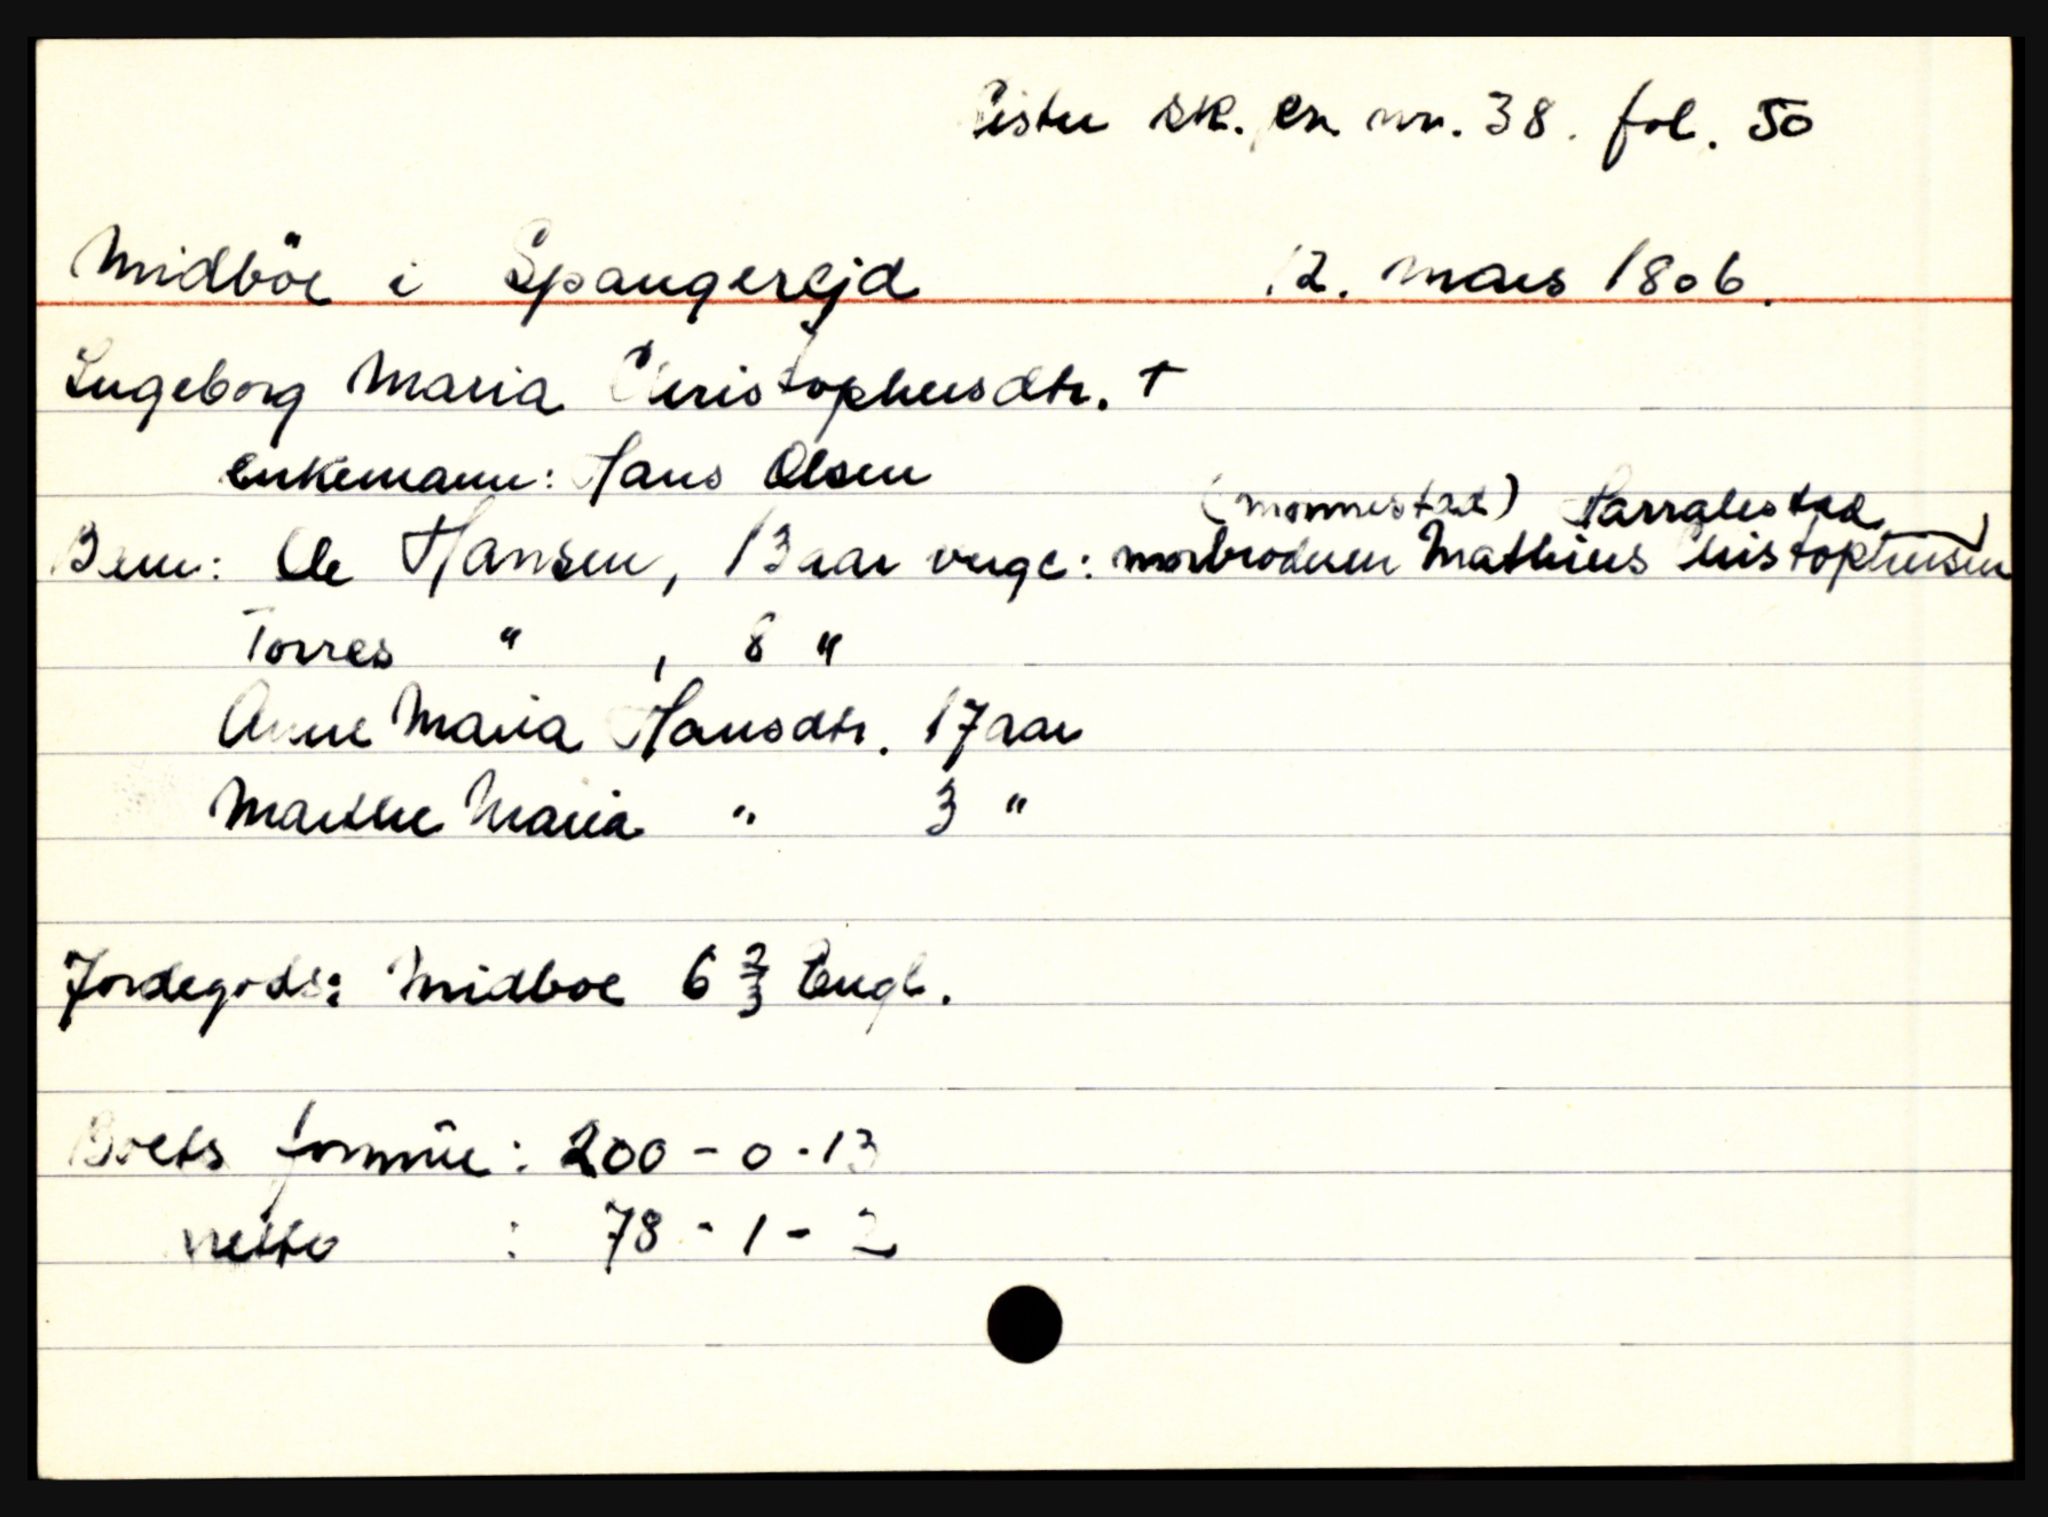 Lister sk. pr. nr. 38. fol. 50
Midböe i Spangerejd 12. mars 1806.
Ingeborg Maria Christophersdtr. +
enkemann: Hans Olsen
(Monnestad) Harralestad
Bern: Ole Hansen, 13 aar verge: morbroderen Mathias Christophersen
Torres " , 8 "
Anne Maria Hansdtr. 17 aar
Marthe Maria " 3 "
Jordegods: Midboe 6 2/3 Engl.
Boets formue: 200 - 0 - 13
netto : 78 - 1 - 2